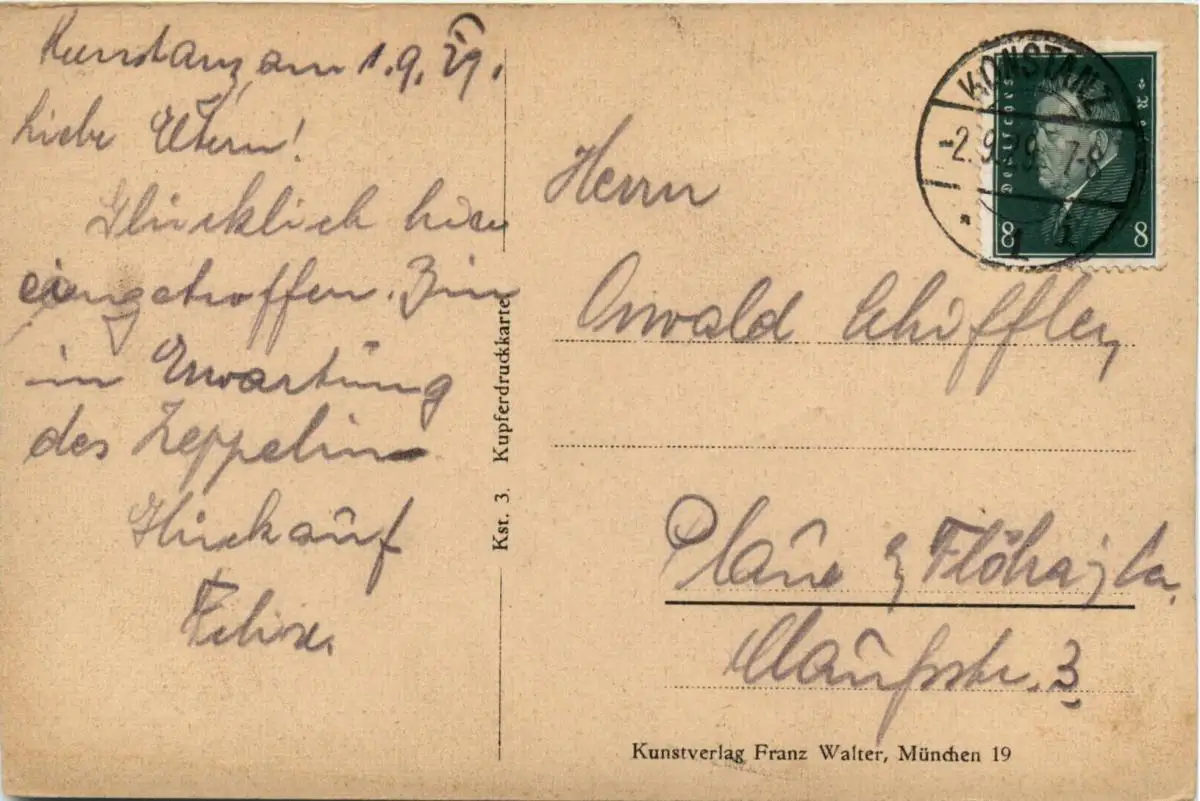 Konstanz, am 1.9.29.
Liebe Eltern!
Glücklich hier
eingetroffen. Bin
in Erwartung
des Zeppelin
Glückauf
Felix.
Kst. 3. Kupferdruckkarte
KONSTANZ
-2.9.29. 7-8
* 1
Deutsches
8 8
Herrn
Oswald Schiffley
Plaue Flöha
3
Kunstverlag Franz Walter, München 19